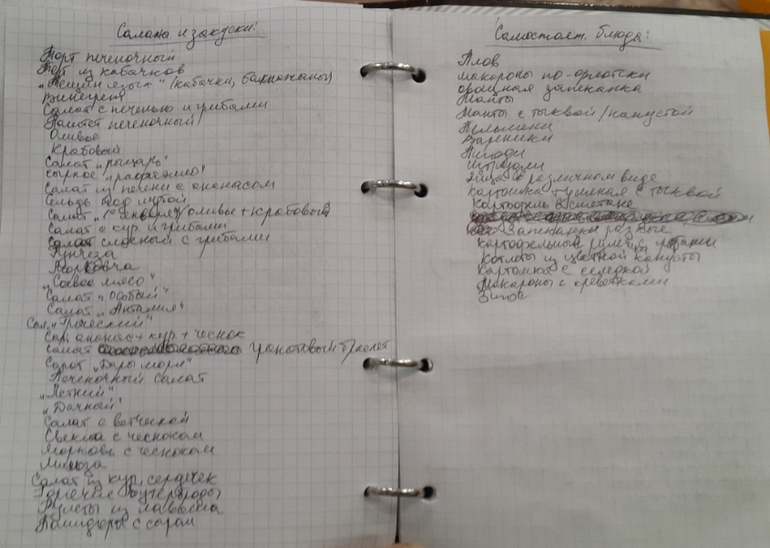 Салаты и закуски:
Торт печеночный
Торт из кабачков
"Тещин язык" (кабачки, баклажаны)
Винегрет
Салат с печенью и грибами
Паштет печеночный
Оливье
Крабовый
Салат "рыцарь"
сырное "рафаэлло"
Салат из печени с ананасом
Сельдь под шубой
Салат (оливье + крабовый)
Салат с кур. и грибами
Салат слоеный с грибами
Фунчеза
Морковча
"Соевое мясо"
Салат "Особый"
Салат "Анталия"
Сал. "Греческий"
Сал. ананас + кур. + чеснок
Салат гранатовый браслет
Салат "Дары моря"
Печеночный салат
"Летний"
"Дачный"
Салат с ветчиной
Свекла с чесноком
морковь с чесноком
Мимоза
Салат из кур. сердечек
Горячие бутерброды
Рулеты из лаваша
Помидоры с сыром
Самостоят. блюда:
Плов
макароны по-флотски
овощная запеканка
Манты
Манты с тыквой/капустой
Пельмени
Вареники
Яйца в различном виде
Картошка тушеная с тыквой
Картофель в сметане
Запеканки разные
Картофельный рулет с грибами
Котлеты из цветной капусты
Картошка с селедкой
Макароны с креветками